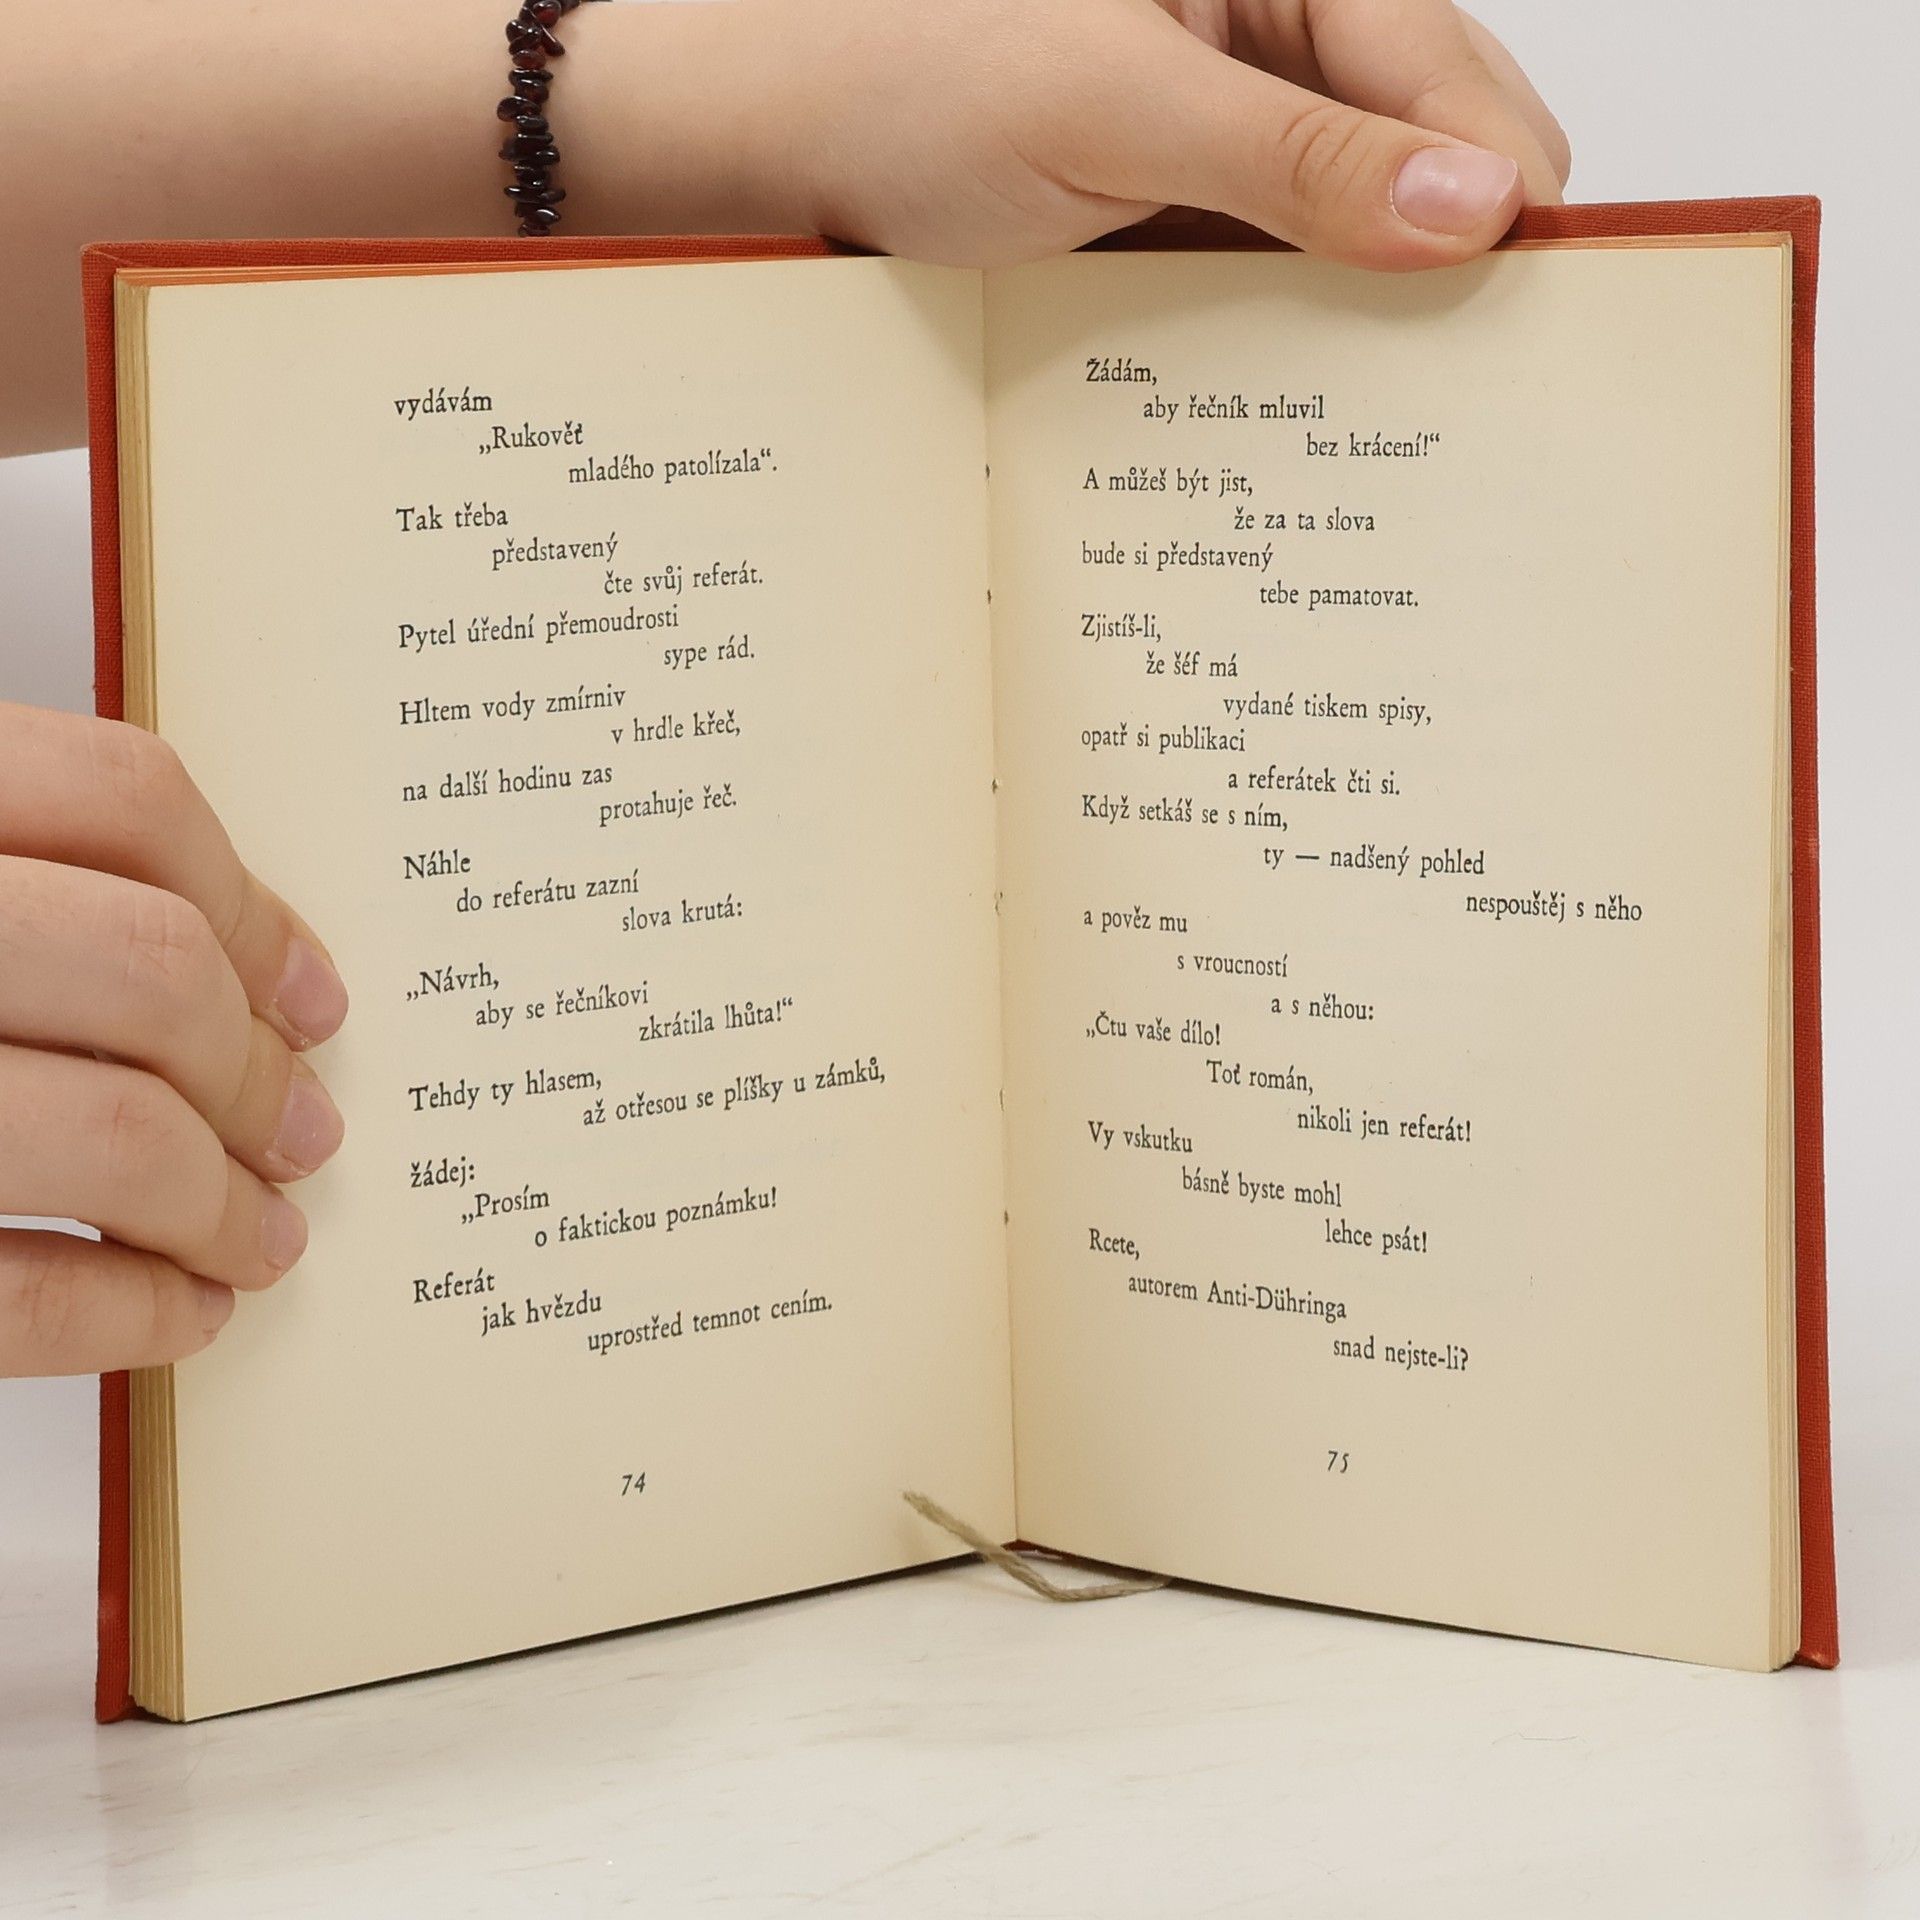 vydávám
„Rukověť
mladého patolízala“.
Tak třeba
představený
čte svůj referát.
Pytel úřední přemoudrosti
sype rád.
Hltem vody zmírniv
v hrdle křeč,
na další hodinu zas
protahuje řeč.
Náhle
do referátu zazní
slova krutá:
„Návrh,
aby se řečníkovi
zkrátila lhůta!“
Tehdy ty hlasem,
až otřesou se plíšky u zámků,
žádej:
„Prosím
o faktickou poznámku!
Referát
jak hvězdu
uprostřed temnot cením.
74
Žádám,
aby řečník mluvil
bez krácení!“
A můžeš být jist,
že za ta slova
bude si představený
tebe pamatovat.
Zjistíš-li,
že šéf má
vydané tiskem spisy,
opatř si publikaci
a referátek čti si.
Když setkáš se s ním,
ty — nadšený pohled
nespouštěj s něho
a pověz mu
s vroucností
a s něhou:
„Čtu vaše dílo!
Toť román,
nikoli jen referát!
Vy vskutku
básně byste mohl
lehce psát!
Rcete,
autorem Anti-Dühringa
snad nejste-li?
75